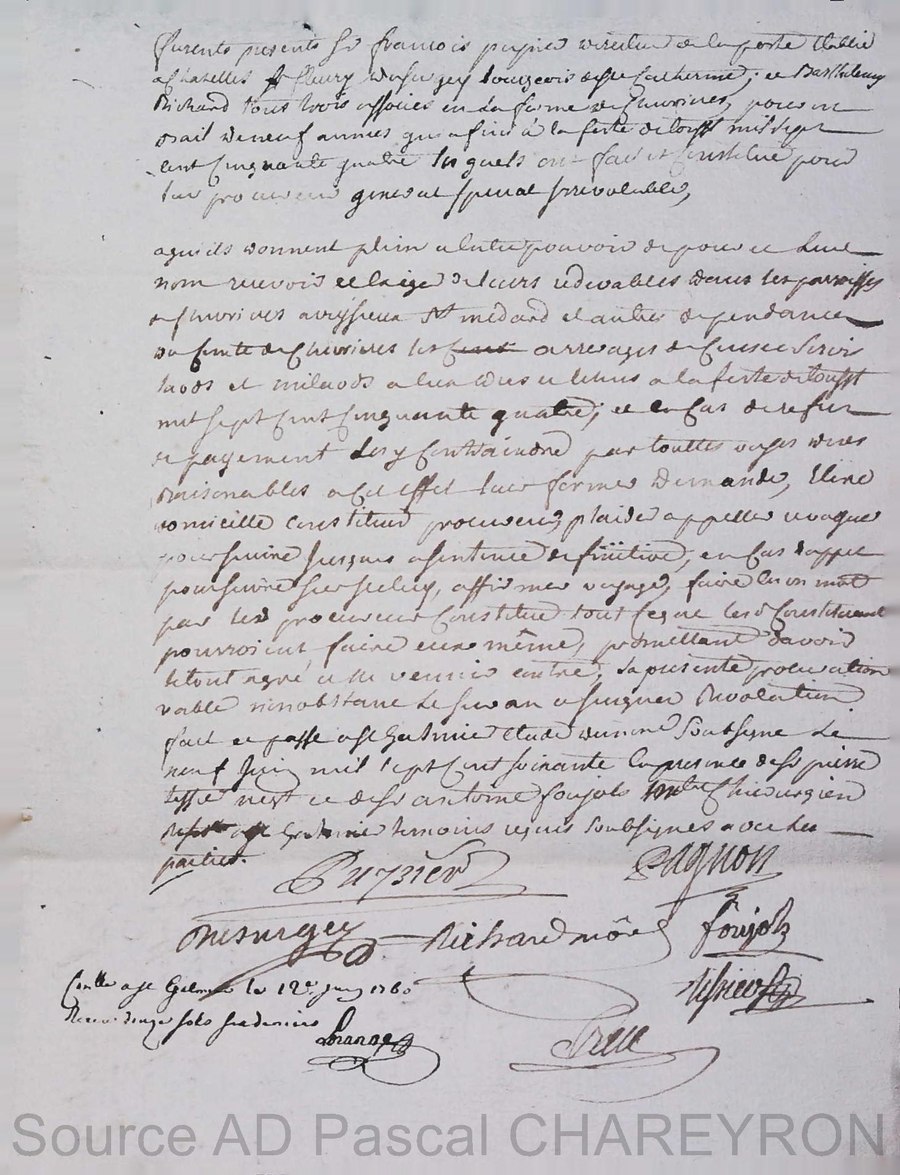 furents presents Sr francois puynier directeur de la poste Etablie
a Chazelles Sr fleury desurgey bourgeois de Ste Catherine; et Barthelemy
Richard tous trois associés en La ferme de Chevrieres, pour un
Bail de neuf années qui a fini à la feste de tousst mil sept
cent Cinquante quatre les quels ont fait et Constitué pour
leur procureur general special Irrevocable,
a qui ils donnent plein et entier pouvoir de pour et a leur
nom recevoir et exiger de leurs redevables dans les parroisses
de Chevrieres aveysieux St medard et autres dependances
du Comté de Chevrieres les arrerages de Cens et Servis
laods et milaods a eux dues et echus a la feste de tousst
mil sept Cent Cinquante quatre; et en Cas de refus
de payement Les y Contraindre par touttes voyes dues
Raisonables a Cet effet leur former demande, Elire
domicille Constituer procureur, plaider appeller revoquer
poursuivre Jusques a sentence definitive, en Cas d'appel
poursuivre sur Icelluy, affirmer voyage, faire en un mot
par led procureur Constitué tout Ce que lesd Constituants
pourroient faire eux même, promettant d'avoir
le tout agré et ne venir Contre, la presente procuration
vable nonobstant Le Suran a surgner Revocation
fait et passé a St Galmier etude du nore Soubsigné Le
neuf Juin mil sept Cent soixante En presence de Sr pierre
et de Sr antoine foujols Mtre Chirurgien
a St Galmier temoins requis Soubsignés avec Les
parties.
Puynier Pagnon
Desurgey Richard foujols
Conllé a St Galmier le 12e Juin 1760
Receu douze sols six deniers
Source AD Pascal CHAREYRON